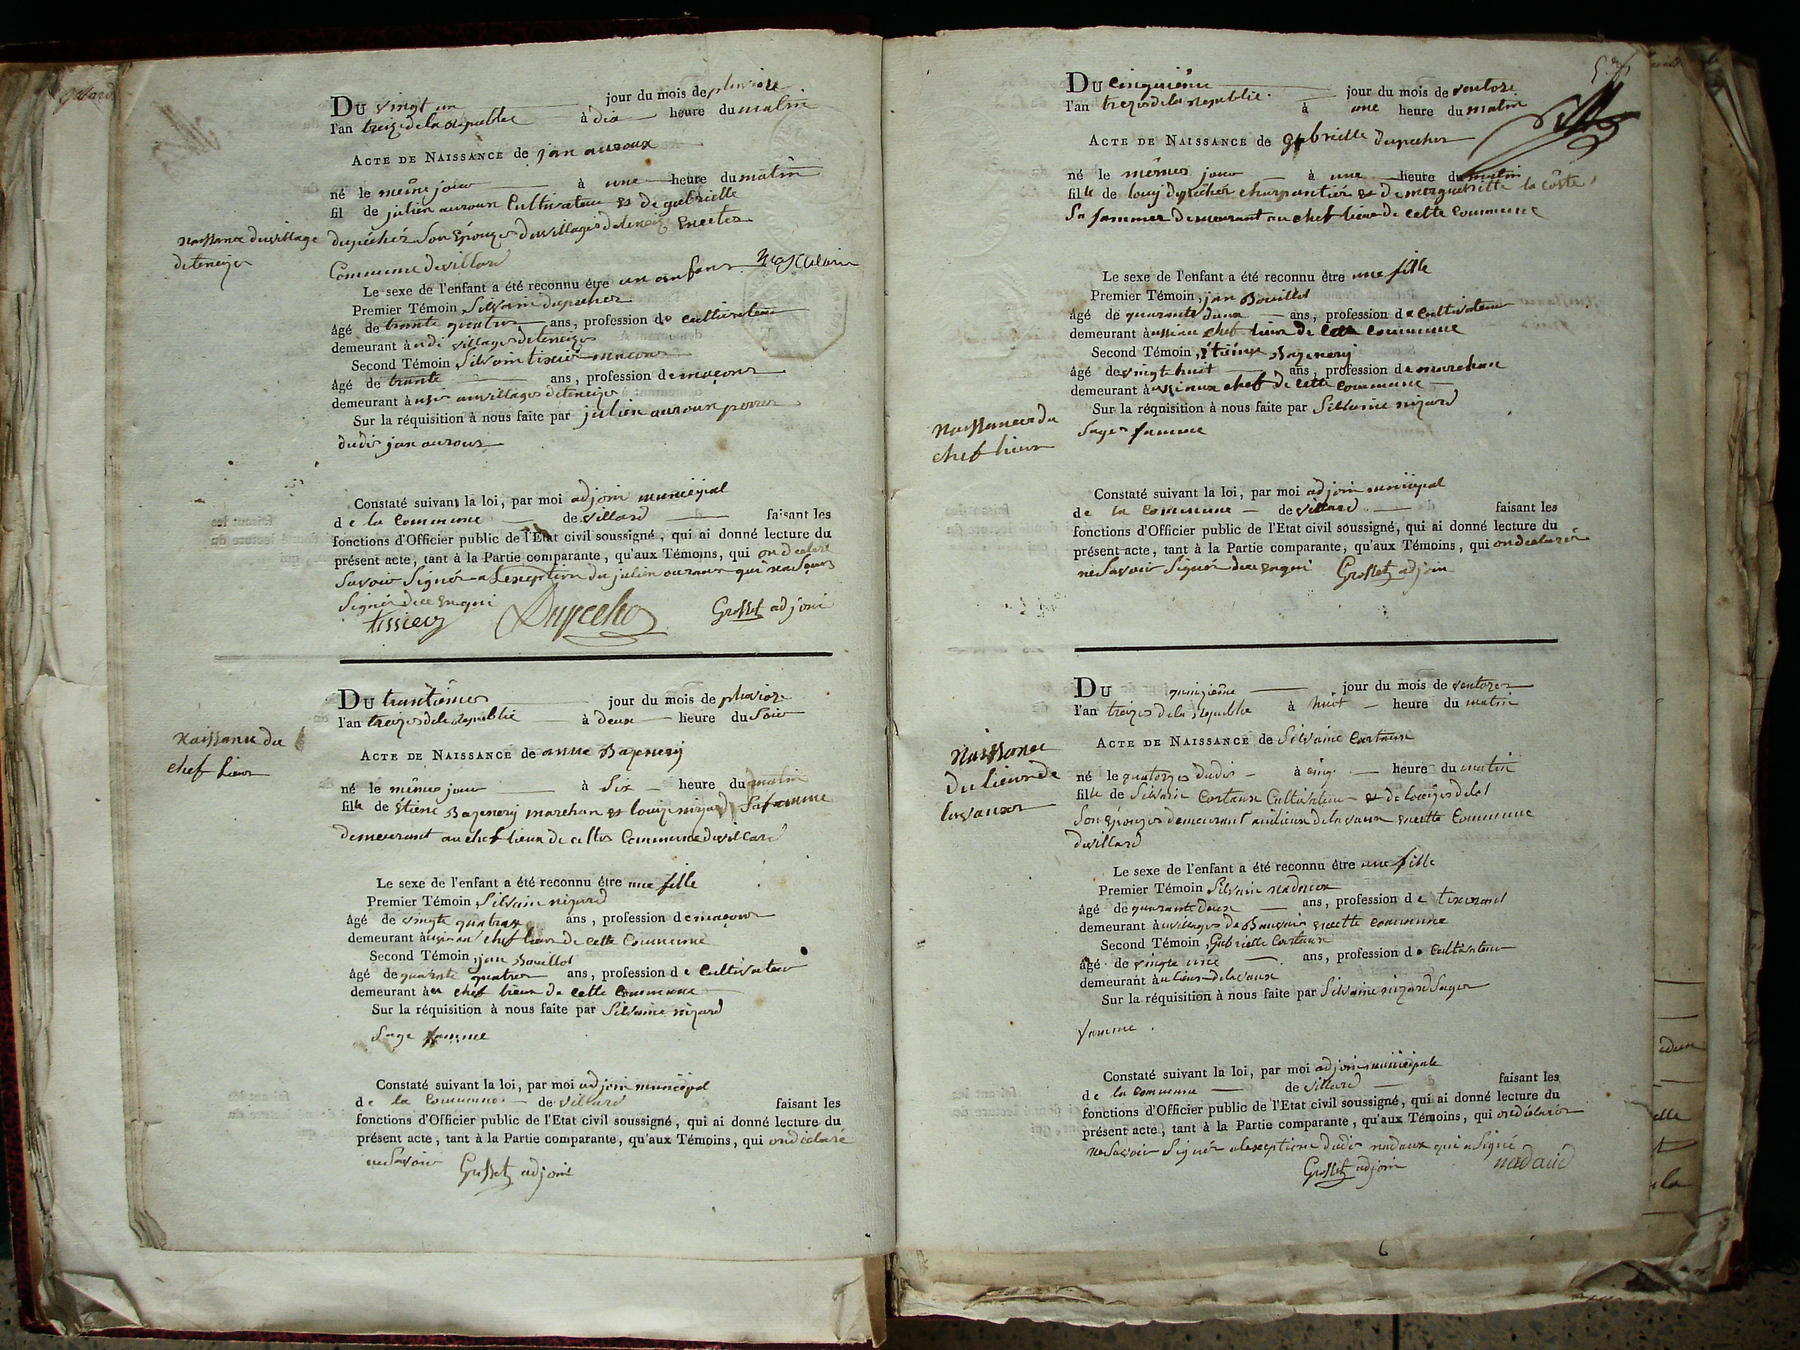 Du vingt un jour du mois de pluviose
l'an treize de la republie à dix heure du matin
Acte de Naissance de jan auroux
né le même jour à une heure du matin
fil de julien auroux Cultivateur et de gabrielle
dupéchér Son Epouze du village de teneize En cete
Commune de villard
Naissance du village
de teneize
Le sexe de l'enfant a été reconnu être un anfant Masculain
Premier Témoin, Silvain dupecher
âgé de trante quatre ans, profession de cultivateur
demeurant à udi village de teneize
Second Témoin, Silvain tixier macon
âgé de trante ans, profession de maçons
demeurant à au village de teneize
Sur la réquisition à nous faite par julien auroux perre
dudit jan auroux
Constaté suivant la loi, par moi adjoin municipal
de la Commune de villard faisant les
fonctions d'Officier public de l'Etat civil soussigné, qui ai donné lecture du
présent acte, tant à la Partie comparante, qu'aux Témoins, qui on declaré
Savoir Signér a Lexeption du julien auroux qui
Signér de ce Enqui
tissier Dupecher Grosset adjoin
Du trantième jour du mois de pluvioze
l'an treize de la republie à deux heure du Soir
Acte de Naissance de anne Bazenery
Naissance du
chef lieux
né le même jour à Six heure du matin
fille de Etiene Bazenery marchan et louize nizard Sa famme
demeurant au chef lieux de cette Commune de villard
Le sexe de l'enfant a été reconnu être une fille
Premier Témoin, Silvain nizard
âgé de vingte quatre ans, profession de maçons
demeurant à chef lieux de cette Commune
Second Témoin, jan Bouillot
âgé de quarante quatre ans, profession de Cultivateur
demeurant à chef lieux de cette Commune
Sur la réquisition à nous faite par Silvaine nizard
Sage famme
Constaté suivant la loi, par moi adjoin municipal
de la Commune de villard faisant les
fonctions d'Officier public de l'Etat civil soussigné, qui ai donné lecture du
présent acte, tant à la Partie comparante, qu'aux Témoins, qui on déclaré
ne Savoir Grosset adjoint
Du cinquième jour du mois de ventoze
l'an treize de la republie à une heure du matin
Acte de Naissance de gabrielle dupecher
né le même jour à une heure du matin
fille de louy dupéchér charpantiér et de margueritte la côste
Sa fammme demeurant au chef lieux de cette Commune
Le sexe de l'enfant a été reconnu être une fille
Premier Témoin, jan Bouillot
âgé de quarante ans, profession de Cultivateur
demeurant à chef lieux de cette Commune
Second Témoin, Etiene Bazenery
âgé de vingte huit ans, profession de marchan
demeurant à chef de cette Commune
Sur la réquisition à nous faite par Silvaine nizard
Sage famme
Naissance du
chef lieux
Constaté suivant la loi, par moi adjoin municipal
de la Commune de villard faisant les
fonctions d'Officier public de l'Etat civil soussigné, qui ai donné lecture du
présent acte, tant à la Partie comparante, qu'aux Témoins, qui on declarér
ne Savoir Signér de ce enqui Grosset adjoin
Du quinzième jour du mois de ventoze
l'an treize de la republie à huit heure du matin
Acte de Naissance de Silvaine Cortaux
Naissance
du lieux de
lavaux
né le quatorze dudit à cinq heure du matin
fille de Silvain Cortaux Cultivateur et de
Son Epouze demeurant au lieux de lavaux en cette Commune
de villard
Le sexe de l'enfant a été reconnu être une fille
Premier Témoin Silvain nadaux
âgé de quarante deux ans, profession de tixerant
demeurant à village de en cette Commune
Second Témoin, Gabrielle Cortaux
âgé de vingte une ans, profession de Cultivateur
demeurant au lieux de lavaux
Sur la réquisition à nous faite par Silvaine nizard Sage
famme
Constaté suivant la loi, par moi adjoin municipale
de la Commune de villard faisant les
fonctions d'Officier public de l'Etat civil soussigné, qui ai donné lecture du
présent acte, tant à la Partie comparante, qu'aux Témoins, qui on declarér
ne Savoir Signér a lexeption dudit nadaux qui a Signé
Grosset adjoin nadaud
6